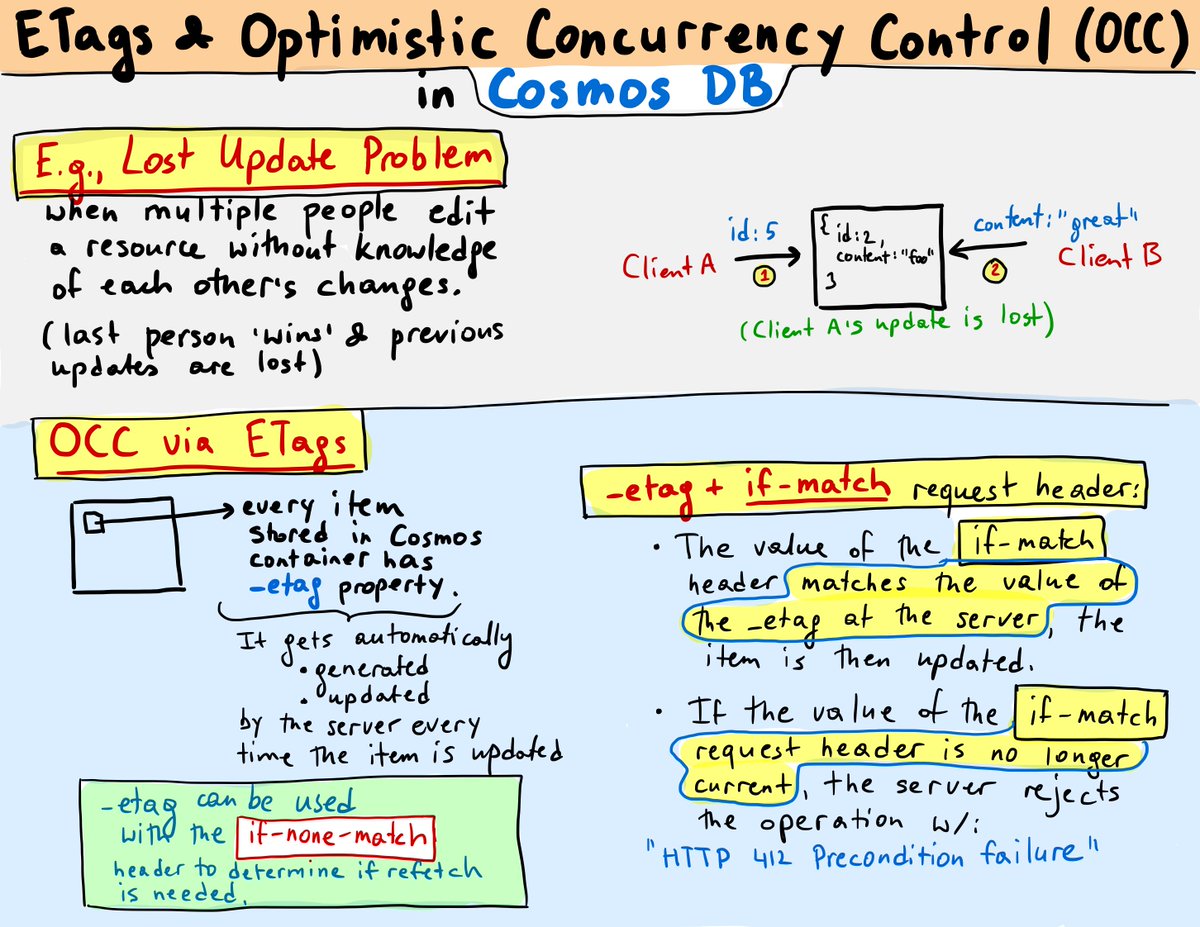 ETags & Optimistic Concurrency Control (OCC)
in Cosmos DB
E.g., Lost Update Problem
when multiple people edit
a resource without knowledge
of each other's changes.
(last person 'wins' & previous
updates are lost)
id: 5
Client A
1
{ id:2,
content: "foo"
}
content: "great"
Client B
2
(Client A's update is lost)
OCC via ETags
every item
stored in Cosmos
container has
_etag property.
It gets automatically
• generated
• updated
by the server every
time the item is updated
_etag can be used
with the if-none-match
header to determine if refetch
is needed.
_etag + if-match request header:
• The value of the if-match
header matches the value of
the _etag at the server, the
item is then updated.
• If the value of the if-match
request header is no longer
current, the server rejects
the operation w/:
"HTTP 412 Precondition failure"